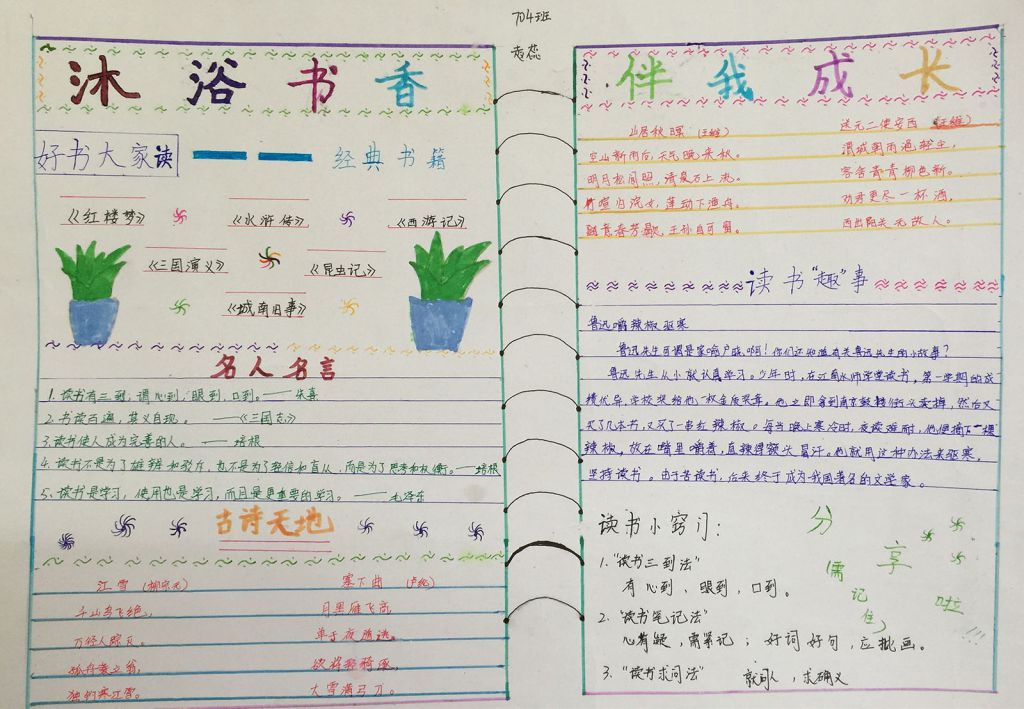 704班
沐浴书香
伴我成长
好书大家读——经典书籍
《红楼梦》 《水浒传》 《西游记》
《三国演义》 《昆虫记》
《城南旧事》
名人名言
1.读书有三到,谓心到,眼到,口到。——朱熹
2.书读百遍,其义自现。——《三国志》
3.读书使人成为完善的人。——培根
4.读书不是为了雄辩和驳斥,也不是为了轻信和盲从,而是为了思考和权衡。——培根
5.读书是学习,使用也是学习,而且是更重要的学习。——毛泽东
古诗天地
江雪 (柳宗元)
千山鸟飞绝,
万径人踪灭。
孤舟蓑立翁,
独钓寒江雪。
塞下曲 (卢纶)
月黑雁飞高,
单于夜遁逃。
欲将轻骑逐,
大雪满弓刀。
山居秋暝 (王维)
空山新雨后,天气晚来秋。
明月松间照,清泉石上流。
竹喧归浣女,莲动下渔舟。
随意春芳歇,王孙自可留。
送元二使安西 (王维)
渭城朝雨浥轻尘,
客舍青青柳色新。
劝君更尽一杯酒,
西出阳关无故人。
读书“趣”事
鲁迅嚼辣椒驱寒
鲁迅先生可谓是家喻户晓啊!你们还知道有关鲁迅先生的小故事?
鲁迅先生从小就认真学习。少年时,在江南水师学堂读书,第一学期的成
绩优异,学校奖给他一枚金质奖章。他立即拿到南京鼓楼街头卖掉,然后又
买了几本书,又买了一串红辣椒。每当晚上寒冷时,夜读难耐,他便摘下一颗
辣椒,放在嘴里嚼着,直辣得额头冒汗。他就用这种办法来驱寒,
坚持读书。由于苦读书,后来终于成为我国著名的文学家。
读书小窍门:
1.“读书三到法”
有心到、眼到、口到。
2.“读书笔记法”
心有疑,需紧记;好词好句,应批画。
3.“读书求问法” 就问人,求确义
分
享
需
记
住,
啦
!!!